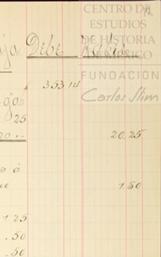 CENTRO DE
ESTUDIOS
DE HISTORIA
DE MÉXICO
FUNDACIÓN
Carlos Slim
ja Debe Haber
353 14
25
20,25
1,50
1 25
.50
.50